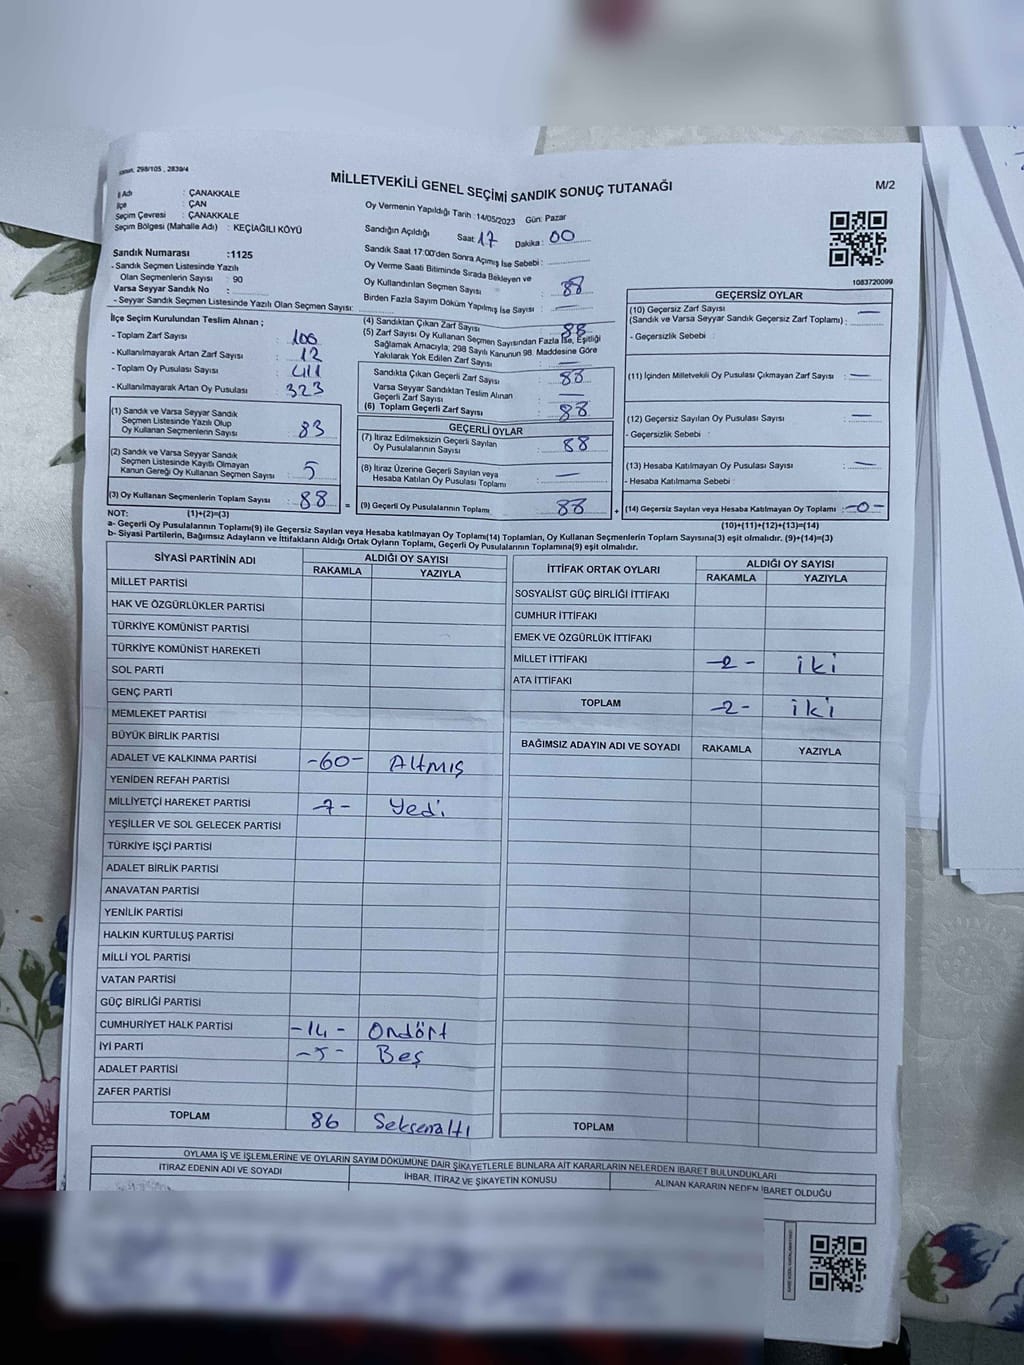 Kanun: 298/105 , 2839/4
MİLLETVEKİLİ GENEL SEÇİMİ SANDIK SONUÇ TUTANAĞI
M/2
İl Adı : ÇANAKKALE
İlçe : ÇAN
Seçim Çevresi : ÇANAKKALE
Seçim Bölgesi (Mahalle Adı) : KEÇİAĞILI KÖYÜ
Sandık Numarası :1125
- Sandık Seçmen Listesinde Yazılı
Olan Seçmenlerin Sayısı : 90
Varsa Seyyar Sandık No :
- Seyyar Sandık Seçmen Listesinde Yazılı Olan Seçmen Sayısı:
Oy Vermenin Yapıldığı Tarih :14/05/2023 Gün: Pazar
Sandığın Açıldığı Saat: 17 Dakika : 00
Sandık Saat 17:00'den Sonra Açımış İse Sebebi :
Oy Verme Saati Bitiminde Sırada Bekleyen ve
Oy Kullandırılan Seçmen Sayısı : 88
Birden Fazla Sayım Döküm Yapılmış İse Sayısı : —
1083720099
İlçe Seçim Kurulundan Teslim Alınan ;
- Toplam Zarf Sayısı : 100
- Kullanılmayarak Artan Zarf Sayısı : 12
- Toplam Oy Pusulası Sayısı : 411
- Kullanılmayarak Artan Oy Pusulası : 323
(1) Sandık ve Varsa Seyyar Sandık
Seçmen Listesinde Yazılı Olup
Oy Kullanan Seçmenlerin Sayısı : 83
(2) Sandık ve Varsa Seyyar Sandık
Seçmen Listesinde Kayıtlı Olmayan
Kanun Gereği Oy Kullanan Seçmen Sayısı : 5
(3) Oy Kullanan Seçmenlerin Toplam Sayısı : 88 =
(4) Sandıktan Çıkan Zarf Sayısı : 88
(5) Zarf Sayısı Oy Kullanan Seçmen Sayısından Fazla İse, Eşitliği
Sağlamak Amacıyla; 298 Sayılı Kanunun 98. Maddesine Göre
Yakılarak Yok Edilen Zarf Sayısı : —
Sandıkta Çıkan Geçerli Zarf Sayısı : 88
Varsa Seyyar Sandıktan Teslim Alınan
Geçerli Zarf Sayısı : —
(6) Toplam Geçerli Zarf Sayısı : 88
GEÇERLİ OYLAR
(7) İtiraz Edilmeksizin Geçerli Sayılan
Oy Pusulalarının Sayısı : 88
(8) İtiraz Üzerine Geçerli Sayılan veya
Hesaba Katılan Oy Pusulası Toplamı : —
(9) Geçerli Oy Pusulalarının Toplamı : 88 +
GEÇERSİZ OYLAR
(10) Geçersiz Zarf Sayısı —
(Sandık ve Varsa Seyyar Sandık Geçersiz Zarf Toplamı) :
- Geçersizlik Sebebi :
(11) İçinden Milletvekili Oy Pusulası Çıkmayan Zarf Sayısı : —
(12) Geçersiz Sayılan Oy Pusulası Sayısı : —
- Geçersizlik Sebebi :
(13) Hesaba Katılmayan Oy Pusulası Sayısı : —
- Hesaba Katılmama Sebebi :
(14) Geçersiz Sayılan veya Hesaba Katılmayan Oy Toplamı : -0-
NOT: (1)+(2)=(3)
(10)+(11)+(12)+(13)=(14)
a- Geçerli Oy Pusulalarının Toplamı(9) ile Geçersiz Sayılan veya Hesaba katılmayan Oy Toplamı(14) Toplamları, Oy Kullanan Seçmenlerin Toplam Sayısına(3) eşit olmalıdır. (9)+(14)=(3)
b- Siyasi Partilerin, Bağımsız Adayların ve İttifakların Aldığı Ortak Oyların Toplamı, Geçerli Oy Pusulalarının Toplamına(9) eşit olmalıdır.
SİYASİ PARTİNİN ADI ALDIĞI OY SAYISI
RAKAMLA YAZIYLA
MİLLET PARTİSİ
HAK VE ÖZGÜRLÜKLER PARTİSİ
TÜRKİYE KOMÜNİST PARTİSİ
TÜRKİYE KOMÜNİST HAREKETİ
SOL PARTİ
GENÇ PARTİ
MEMLEKET PARTİSİ
BÜYÜK BİRLİK PARTİSİ
ADALET VE KALKINMA PARTİSİ -60- Altmış
YENİDEN REFAH PARTİSİ
MİLLİYETÇİ HAREKET PARTİSİ -7- Yedi
YEŞİLLER VE SOL GELECEK PARTİSİ
TÜRKİYE İŞÇİ PARTİSİ
ADALET BİRLİK PARTİSİ
ANAVATAN PARTİSİ
YENİLİK PARTİSİ
HALKIN KURTULUŞ PARTİSİ
MİLLİ YOL PARTİSİ
VATAN PARTİSİ
GÜÇ BİRLİĞİ PARTİSİ
CUMHURİYET HALK PARTİSİ -14- Ondört
İYİ PARTİ -5- Beş
ADALET PARTİSİ
ZAFER PARTİSİ
TOPLAM 86 Seksenaltı
İTTİFAK ORTAK OYLARI ALDIĞI OY SAYISI
RAKAMLA YAZIYLA
SOSYALİST GÜÇ BİRLİĞİ İTTİFAKI
CUMHUR İTTİFAKI
EMEK VE ÖZGÜRLÜK İTTİFAKI
MİLLET İTTİFAKI -2- iki
ATA İTTİFAKI
TOPLAM -2- iki
BAĞIMSIZ ADAYIN ADI VE SOYADI RAKAMLA YAZIYLA
TOPLAM
OYLAMA İŞ VE İŞLEMLERİNE VE OYLARIN SAYIM DÖKÜMÜNE DAİR ŞİKAYETLERLE BUNLARA AİT KARARLARIN NELERDEN İBARET BULUNDUKLARI
İTİRAZ EDENİN ADI VE SOYADI İHBAR, İTİRAZ VE ŞİKAYETİN KONUSU ALINAN KARARIN NEDEN İBARET OLDUĞU